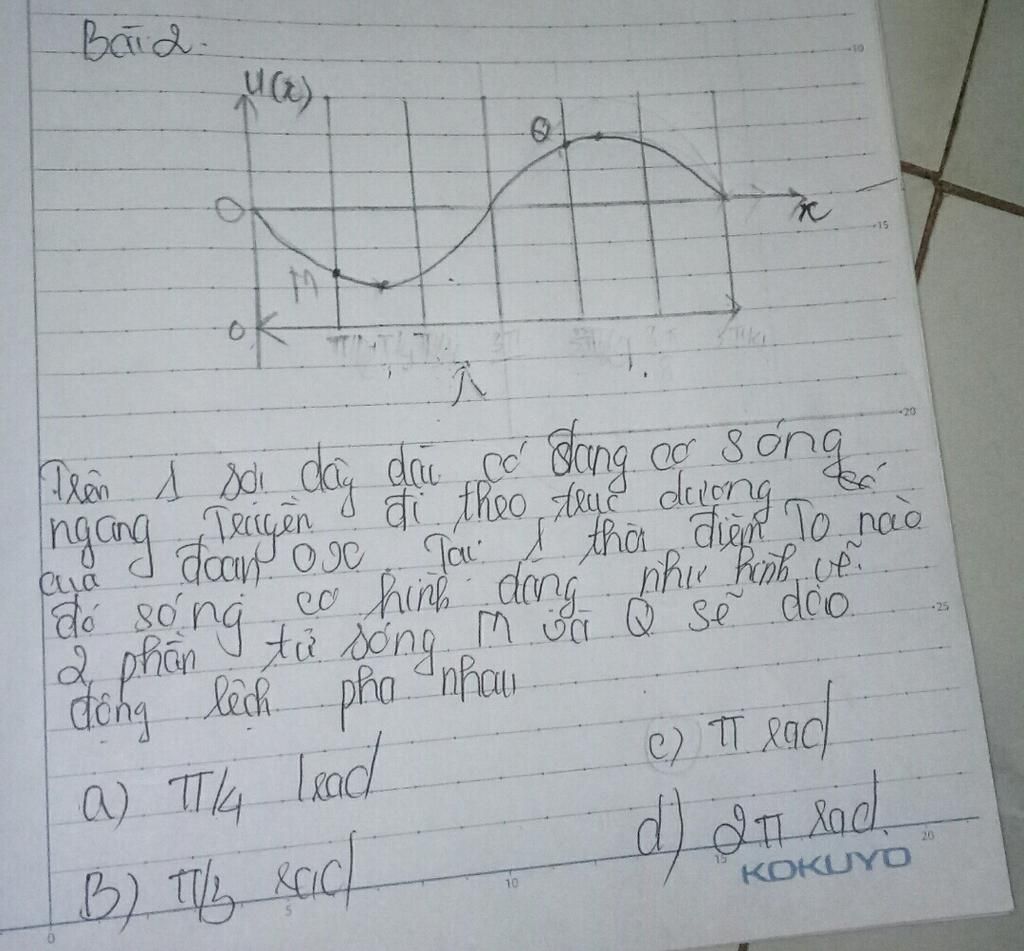 Bài 2.
U(x)
Q
O
x
M
O
λ
Trên 1 sợi dây dài có đang có sóng
ngang truyền đi theo trục dương
của đoạn 0x. Tại 1 thời điểm T0 nào
đó sóng có hình dạng như hình vẽ.
2 phần tử sóng M và Q sẽ dao
động lệch pha nhau
a) π/4 rad
c) π rad
B) π/3 rad
d) 2π rad.
KOKUYO
10
15
20
25
0
5
10
15
20